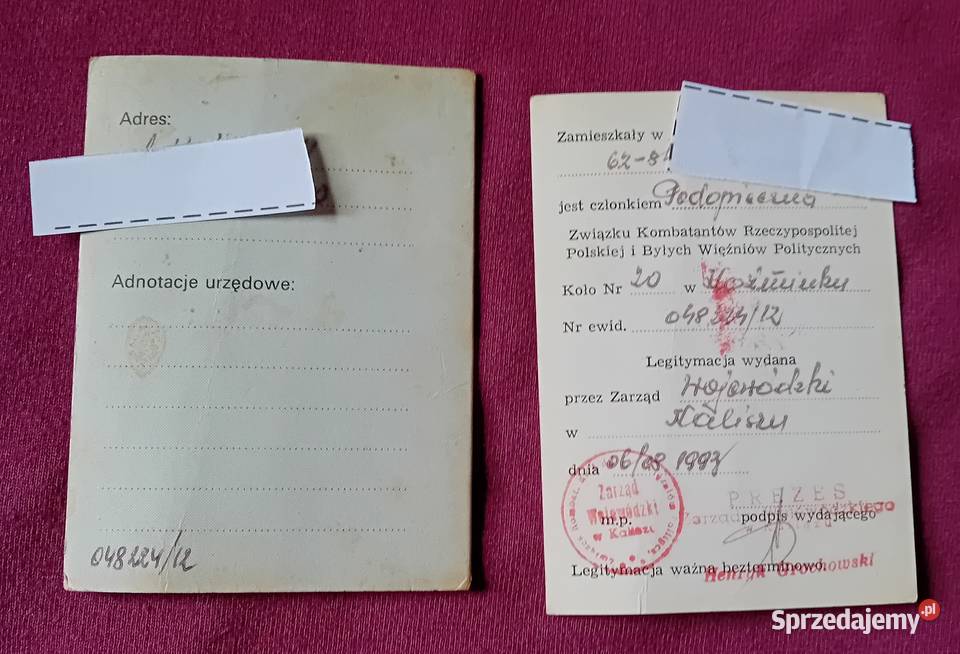 Adres:
Adnotacje urzędowe:
048224/12
Zamieszkały w
62-8
jest członkiem Podopieczna
Związku Kombatantów Rzeczypospolitej
Polskiej i Byłych Więźniów Politycznych
Koło Nr 20 w Koźminku
Nr ewid. 048224/12
Legitymacja wydana
przez Zarząd Wojewódzki
w Kaliszu
dnia 06/08 1993
Zarząd
Wojewódzki
w Kaliszu
m.p.
PREZES
Zarządu Wojewódzkiego
podpis wydającego
Legitymacja ważna bezterminowo.
Henryk Grochowski
Sprzedajemy.pl